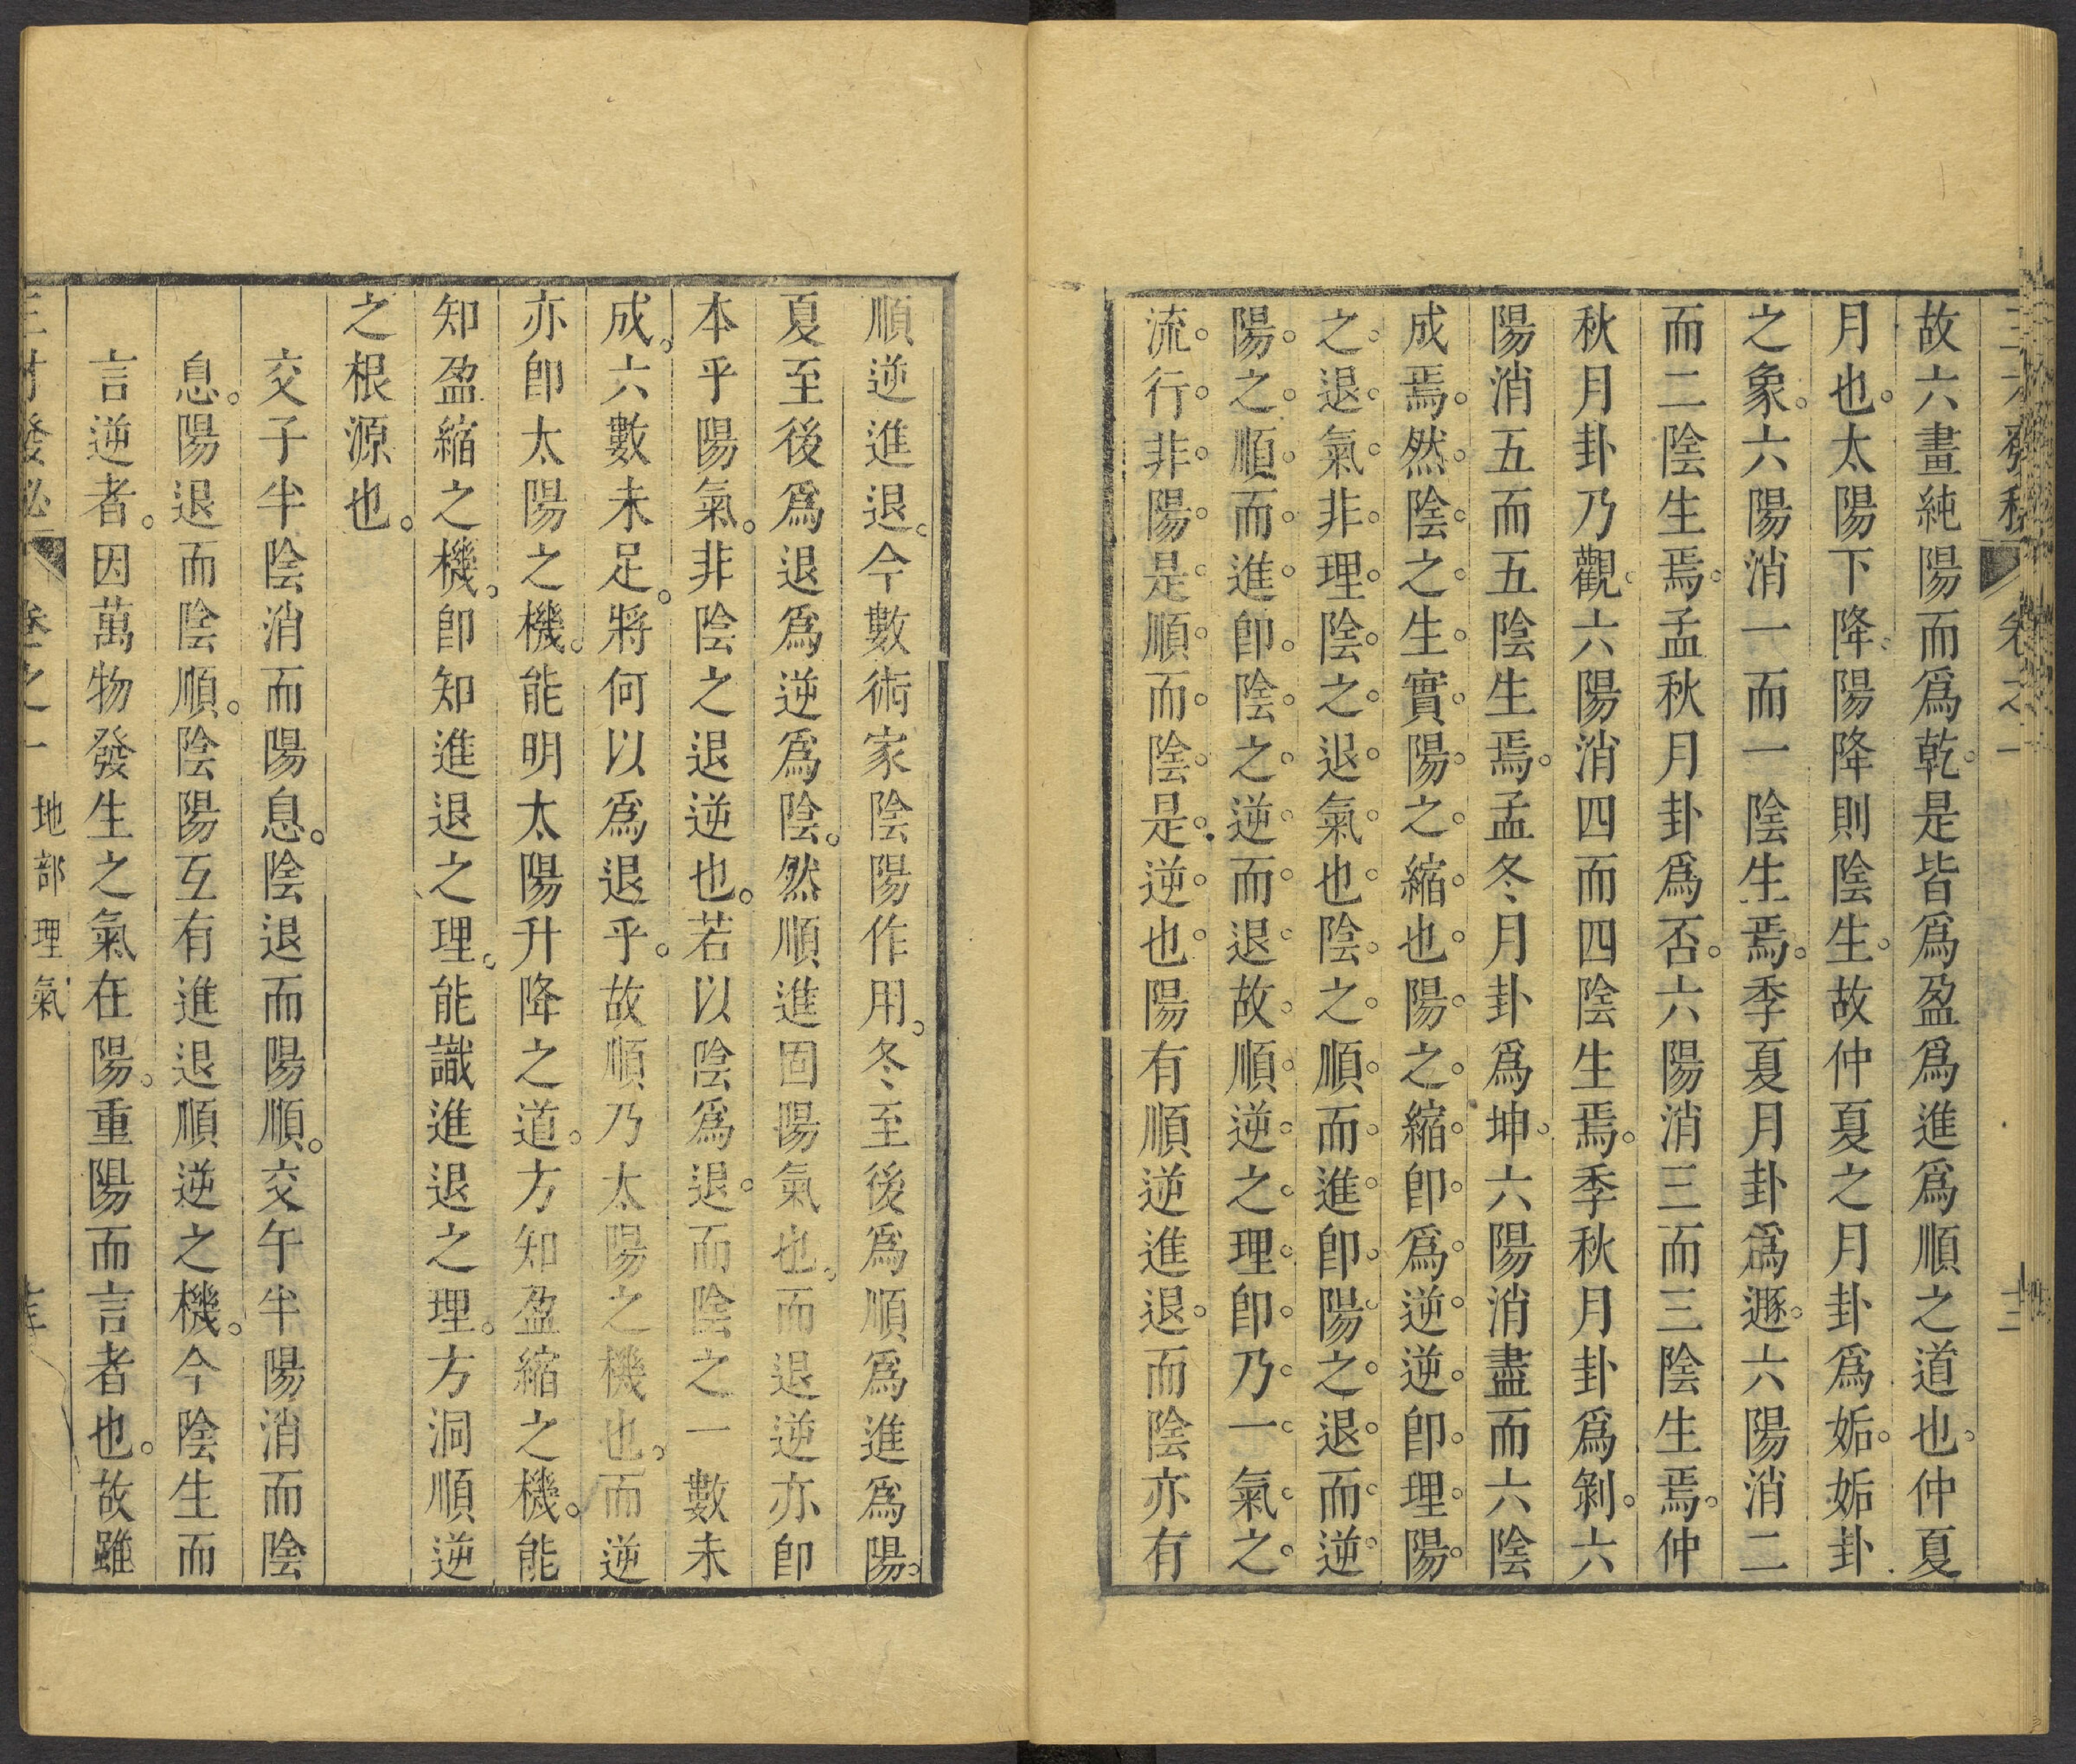 故六畫純陽而爲乾。是皆爲盈爲進爲順之道也。仲夏
月也。太陽下降。陽降則陰生。故仲夏之月卦爲姤。姤卦
之象。六陽消一而一陰生焉。季夏月卦爲遯。六陽消二
而二陰生焉。孟秋月卦爲否。六陽消三而三陰生焉。仲
秋月卦乃觀。六陽消四而四陰生焉。季秋月卦爲剝。六
陽消五而五陰生焉。孟冬月卦爲坤。六陽消盡而六陰
成焉。然陰之生實陽之縮也。陽之縮卽爲逆逆卽理陽
之退氣非理陰之退氣也陰之順而進卽陽之退而逆
陽之順而進卽陰之逆而退故順逆之理卽乃一氣之
流行非陽是順而陰是逆也陽有順逆進退。而陰亦有
順逆進退。今數術家陰陽作用。冬至後爲順爲進爲陽。
夏至後爲退爲逆爲陰。然順進固陽氣也。而退逆亦卽
本乎陽氣。非陰之退逆也。若以陰爲退。而陰之一數未
成。六數未足。將何以爲退乎。故順乃太陽之機也。而逆
亦卽太陽之機。能明太陽升降之道。方知盈縮之機。能
知盈縮之機。卽知進退之理。能識進退之理。方洞順逆
之根源也。
交子半陰消而陽息。陰退而陽順。交午半陽消而陰
息。陽退而陰順。陰陽互有進退順逆之機。今陰生而
言逆者。因萬物發生之氣在陽。重陽而言者也。故雖
三才發秘 卷之一 地部理氣